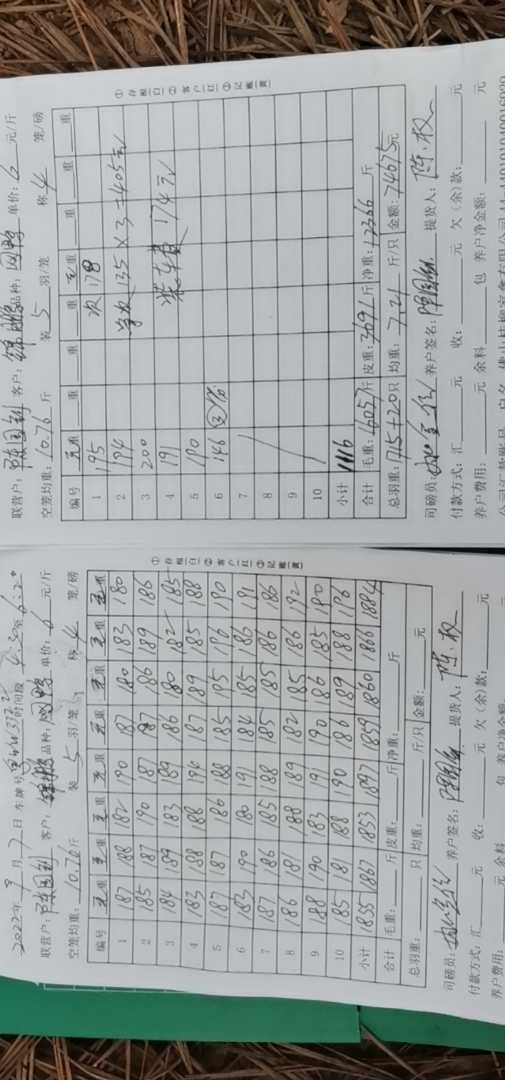 2022年9月7日 车牌号 时间段
联营户: 陈国钊 客户: 锦鹏 品种: 凤鸭 单价: 6 元/斤
空笼均重: 10.76 斤 装 5 羽/笼 称 4 笼/磅
编号 毛重 毛重 毛重 毛重 毛重 毛重 毛重 毛重
1 187 188 182 190 187 180 183 180
2 185 187 190 187 187 186 189 186
3 184 189 183 189 186 180 182 185
4 183 188 188 194 187 189 185 188
5 187 187 186 188 185 195 196 190
6 183 190 180 191 184 185 186 191
7 187 186 185 188 185 185 186 186
8 186 181 188 189 182 185 186 192
9 188 190 183 191 190 186 185 190
10 185 181 188 190 186 189 188 196
小计 1855 1867 1853 1897 1859 1860 1866 1884
合计 毛重: 斤 皮重: 斤 净重: 斤
总羽重: 只 均重: 斤/只 金额: 元
司磅员: 养户签名: 陈国钊 提货人: 陈权
付款方式: 汇 元 收: 元 欠(余)款: 元
养户费用: 元 余料 包 养户净金额: 元
①存根白②客户红③记账黄
联营户: 陈国钊 客户: 锦鹏 品种: 凤鸭 单价: 6 元/斤
空笼均重: 10.76 斤 装 5 羽/笼 称 4 笼/磅
编号 毛重 重 重 重 毛重 重 重 重
1 195 次 178
2 194 135×3=405元
3 200
4 191 装车费 174元
5 190
6 146 ③
7
8
9
10
小计 1116
合计 毛重: 16057 斤 皮重: 3691 斤 净重: 12366 斤
总羽重: 1715+20 只 均重: 7.21 斤/只 金额: 74675 元
司磅员: 养户签名: 陈国钊 提货人: 陈权
付款方式: 汇 元 收: 元 欠(余)款: 元
养户费用: 元 余料 包 养户净金额: 元
①存根白②客户红③记账黄